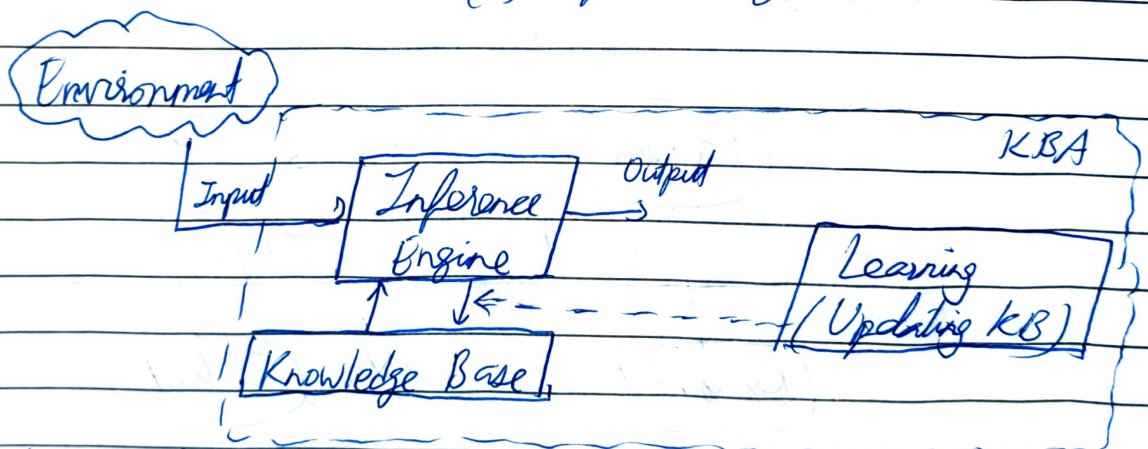 Environment
KBA
Input
Output
Inference
Engine
Learning
(Updating KB)
Knowledge Base